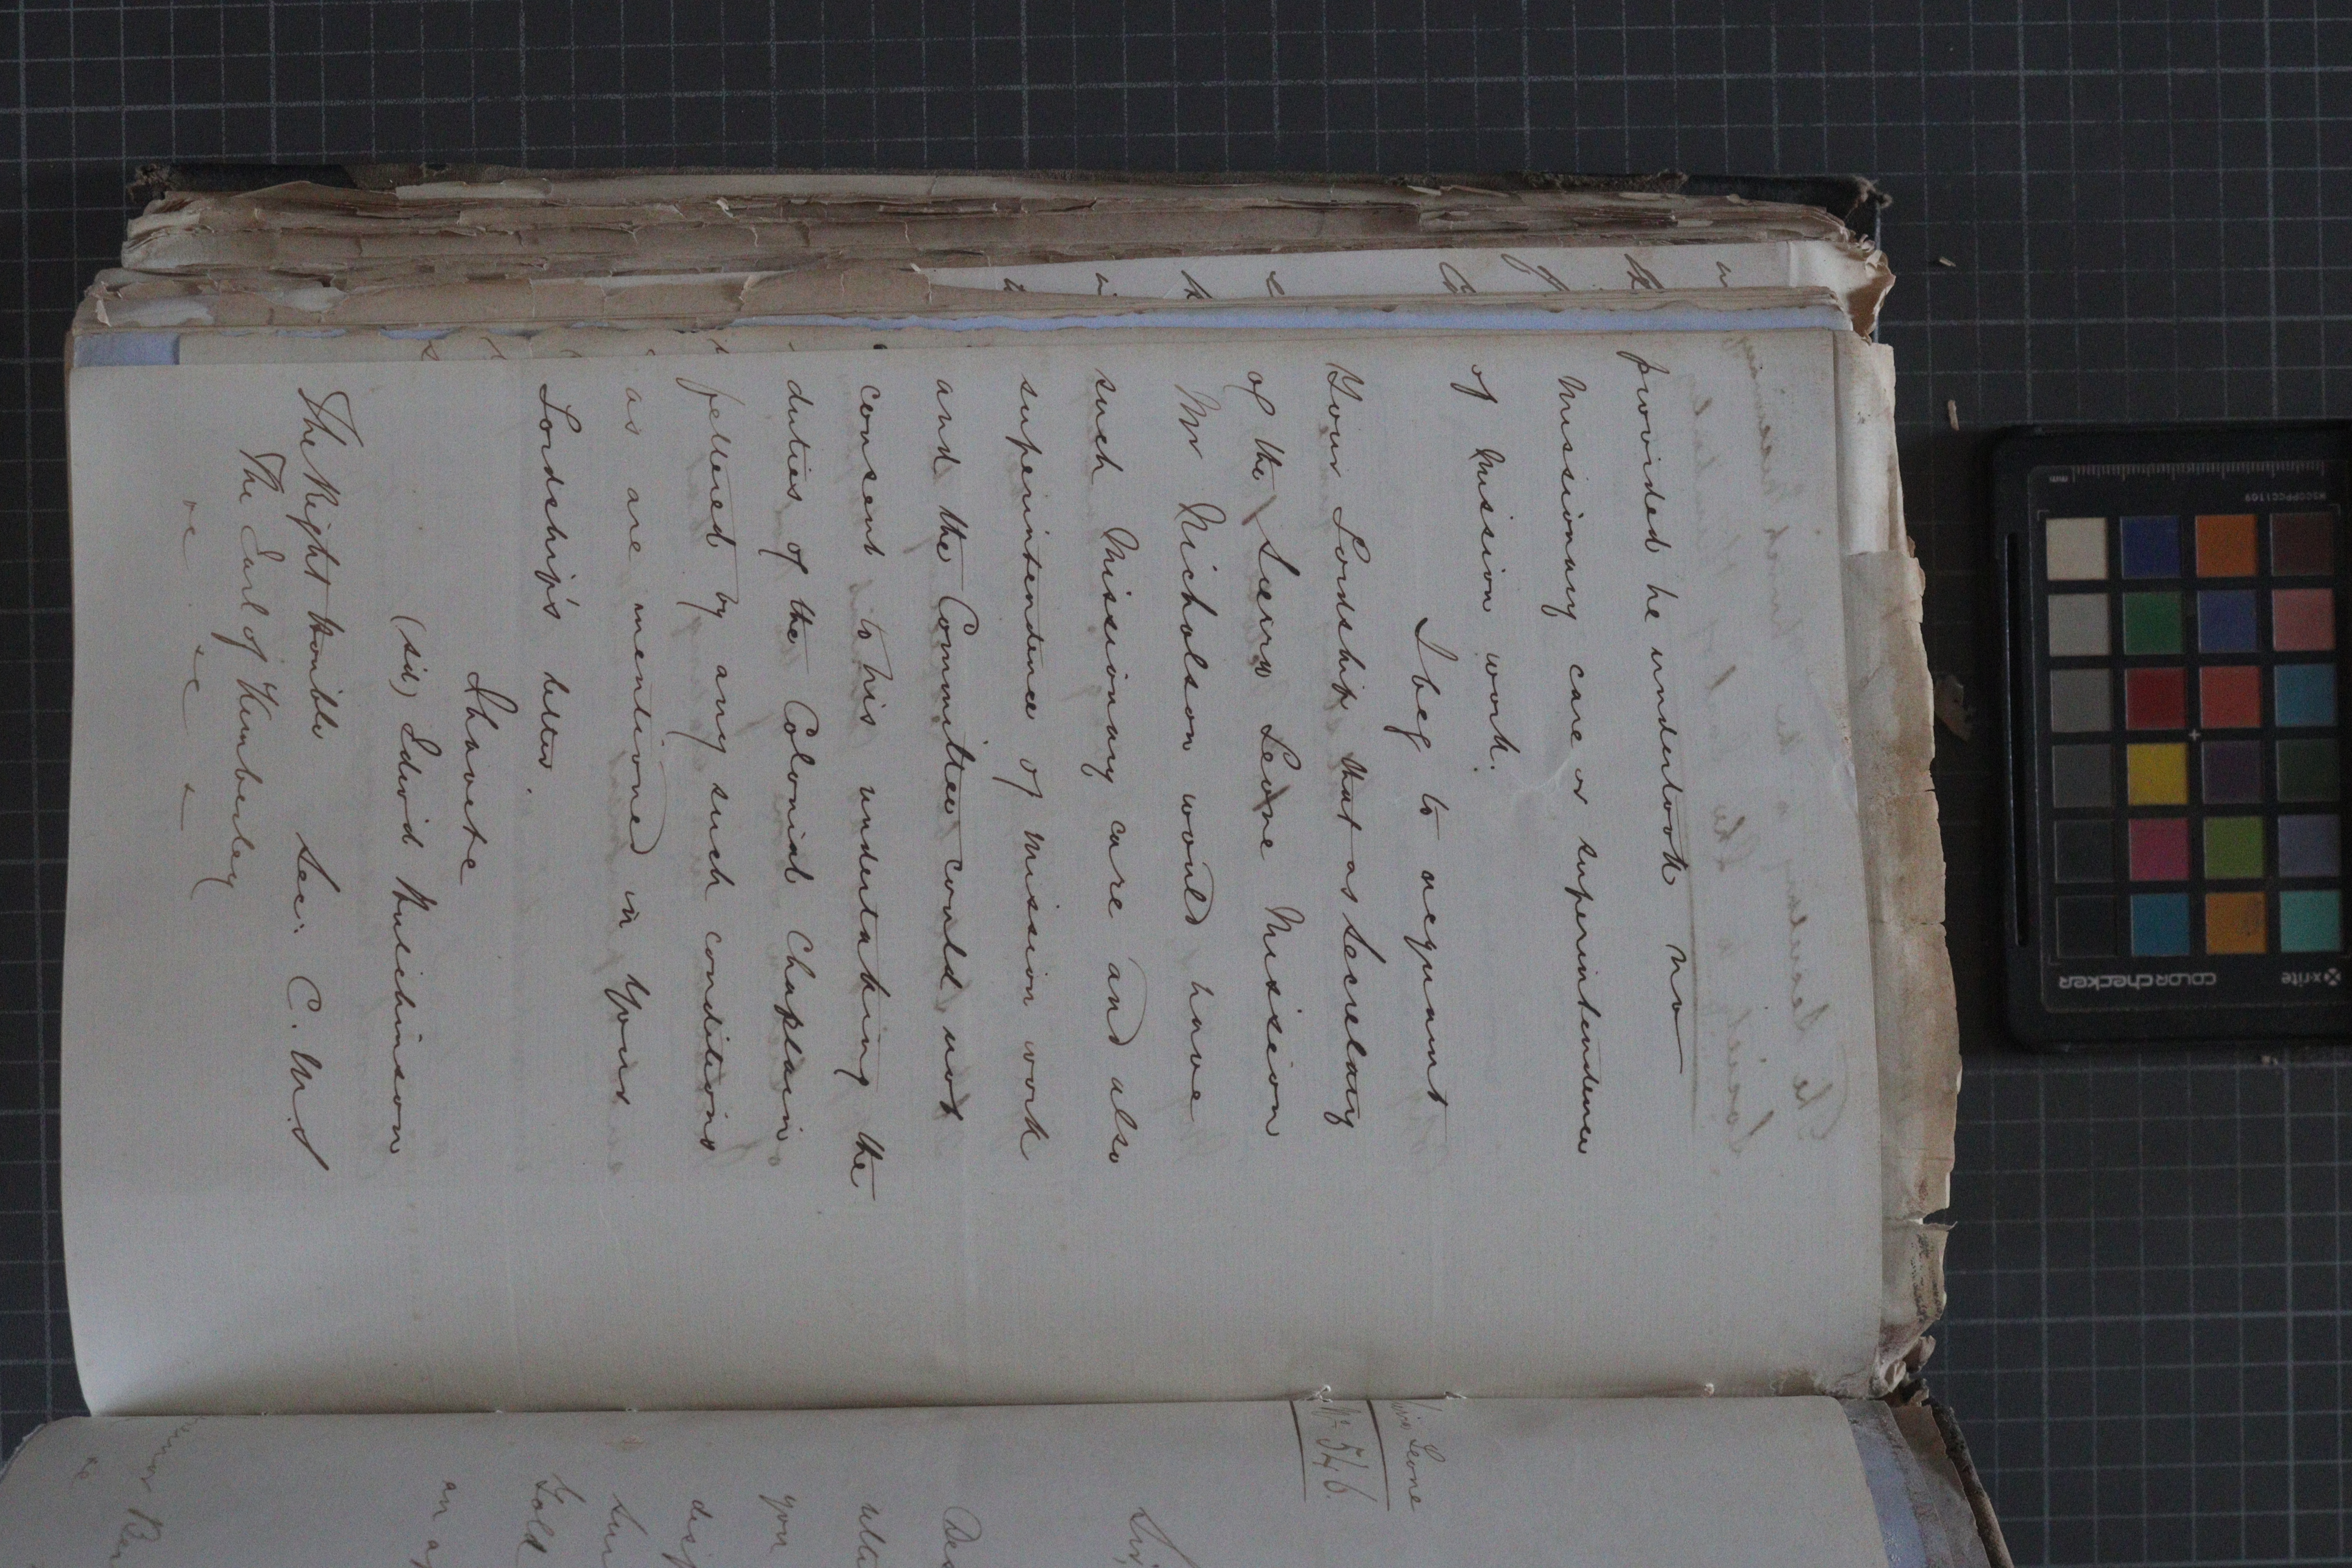 provided he undertook no
Missionary care or superintendence
of Mission work.
I beg to acquaint
Your Lordship that as Secretary
of the Sierra Leone Mission
Mr Nicholson would have
such Missionary care and also
superintendence of Mission work
and the Committee could not
consent to his undertaking the
duties of the Colonial Chaplain
fettered by any such conditions
as are mentioned in Your
Lordship's letter.
I have &c
(sid) Edwd Hutchinson
Sec: C. M. S
The Right Honble
The Earl of Kimberley
&c &c &c
Leone
No 546.
Sir,
you
Gold
an